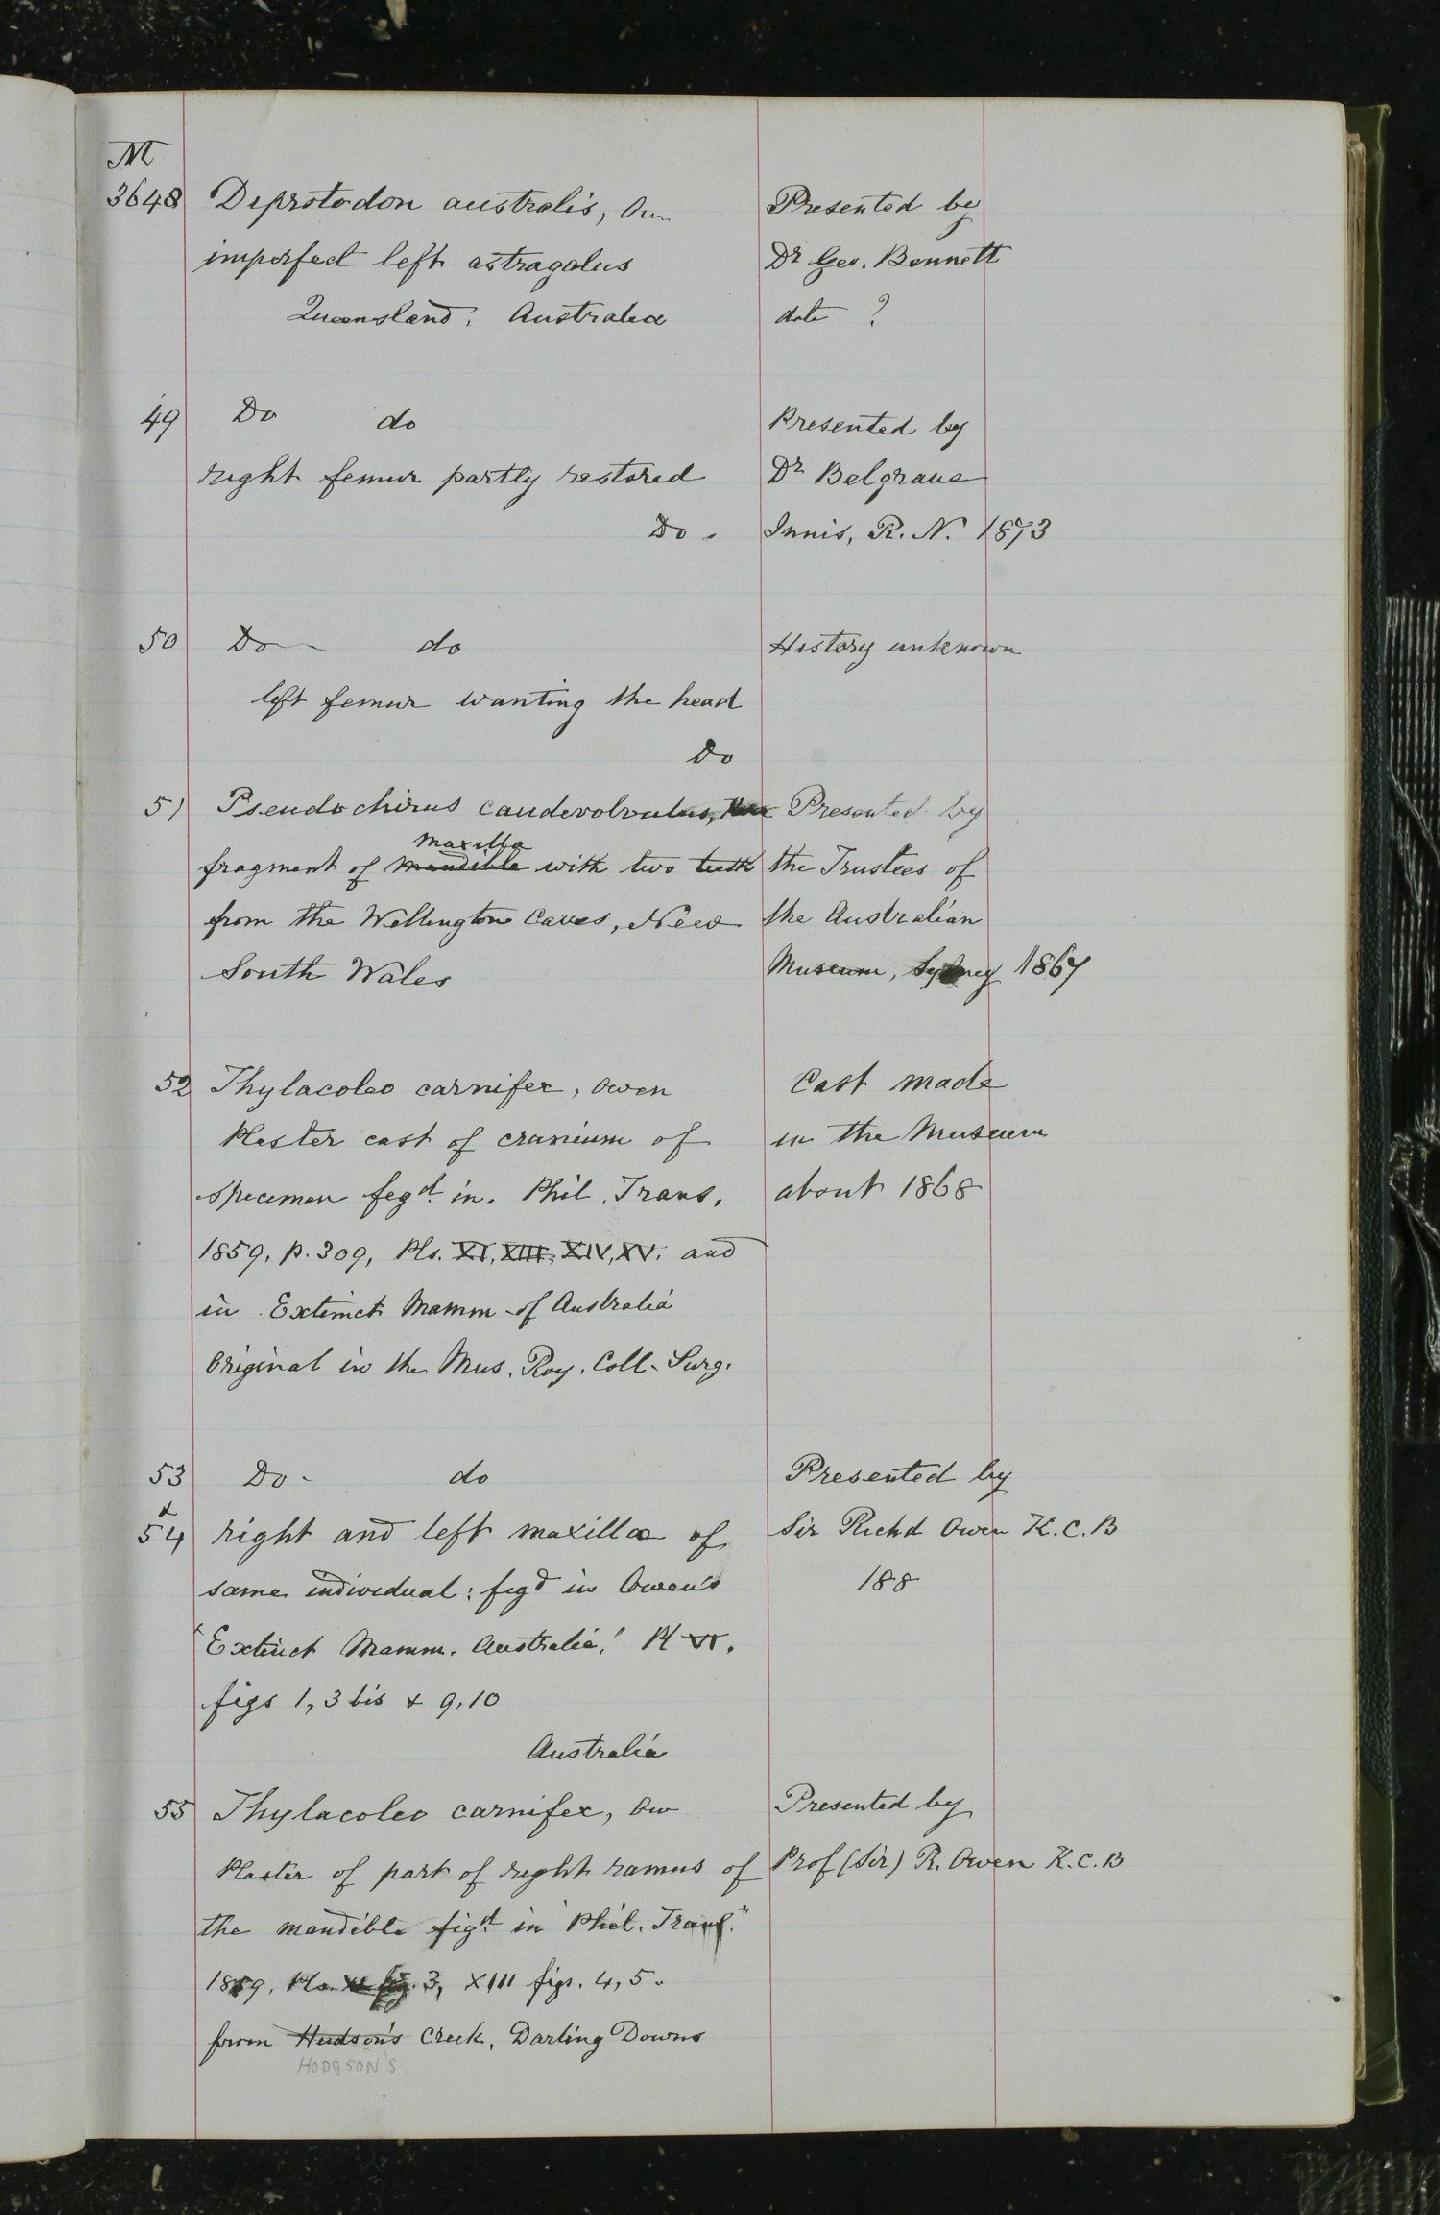 M
3648 Diprotodon australis, Ow. Presented by
imperfect left astragalus Dr Geo. Bennett
Queensland, Australia date ?
49 Do do Presented by
right femur partly restored Dr Belgrave
Do. Innis, R. N. 1873
50 Do do History unknown
left femur wanting the head
Do
51 Pseudochirus caudivolvulus, Presented by
maxilla
fragment of mandible with two teeth the Trustees of
from the Wellington Caves, New the Australian
South Wales Museum, Sydney 1867
52 Thylacoleo carnifex, Owen Cast made
Plaster cast of cranium of in the Museum
specimen figd. in. Phil. Trans. about 1868
1859, p. 309, Pls. XI, XIII, XIV, XV. and
in Extinct Mamm of Australia
Original in the Mus. Roy. Coll. Surg.
53 Do. do Presented by
&
54 right and left maxillæ of Sir Richd Owen K.C.B
same individual: figd in Owen's 188
'Extinct Mamm. Australia.' Pl VI.
figs 1, 3 bis & 9, 10
Australia
55 Thylacoleo carnifex, Ow Presented by
Plaster of part of right ramus of Prof (Sir) R. Owen K.C.B
the mandible figd. in "Phil. Trans."
1859, Pls. XI fig. 3, XIII figs. 4, 5.
from Hudson's Creek, Darling Downs
HODGSON'S